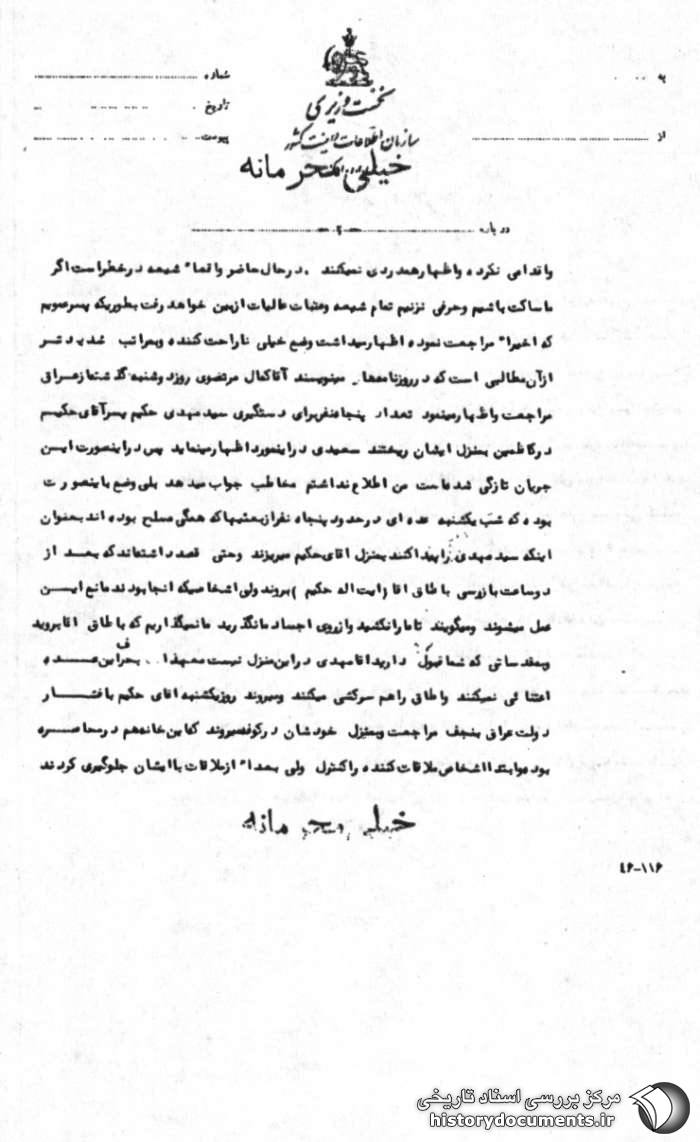 نخست وزیری
سازمان اطلاعات و امنیت کشور
به
از
شماره
تاریخ
پیوست
خیلی محرمانه
درباره -۲-
واقدامی نکرده واظهار همدردی نمیکنند . در حال حاضر واقعاً شیعه در خطر است اگر
ماساکت باشیم وحرفی نزنیم تمام شیعه وعتبات عالیات ازبین خواهد رفت بطوریکه پسرعمویم
که اخیراً مراجعت نموده اظهار میداشت وضع خیلی ناراحت کننده وبمراتب شدیدتر
ازآن مطالبی است که در روزنامه‌ها مینویسند آقاکمال مرتضوی روزدوشنبه گذشته ازعراق
مراجعت واظهار مینمود تعداد پنجاه نفر برای دستگیری سید مهدی حکیم پسر آقای حکیم
در کاظمین بمنزل ایشان ریختند سعیدی دراینمورد اظهار مینماید پس دراینصورت ایسن
جریان تازگی شده است من اطلاع نداشتم مخاطب جواب میدهد بلی وضع باینصورت
بوده که شب یکشنبه عده ای در حدود پنجاه نفر از بعثیها که همگی مسلح بوده اند بعنوان
اینکه سید مهدی را پیدا کنند بمنزل اقای حکیم میریزند وحتی قصد داشته‌اند که بعد از
دوساعت بازرسی باطاق اقا (ایت اله حکیم ) بروند ولی اشخاصیکه انجا بودند مانع ایسن
عمل میشوند ومیگویند تا ما را نکشید و ازروی اجساد ما نگذرید ما نمیگذاریم که باطاق اقا بروید
وبمقدساتی که شما قبول دارید اقامهدی دراین منزل نیست معهذا بحرف این عسده
اعتنائی نمیکنند واطاق راهم سرکشی میکنند ومیروند روزیکشنبه اقای حکیم بافشار
دولت عراق بنجف مراجعت وبمنزل خودشان در کوفه میروند که این خانه هم در محاصره
بوده وابتدا اشخاص ملاقات کننده راکنترل ولی بعداً ازملاقات باایشان جلوگیری کردند
خیلی محرمانه
۴۶-۱۱۶
مرکز بررسی اسناد تاریخی
historydocuments.ir